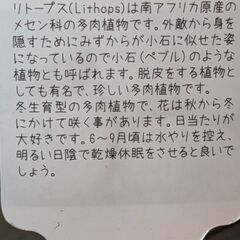 リトープス(Lithops)は南アフリカ原産の
メセン科の多肉植物です。外敵から身を
隠すためにみずからが小石に似せた姿
になっているので小石(ペブル)のような
植物とも呼ばれます。脱皮をする植物と
しても有名で、珍しい多肉植物です。
冬生育型の多肉植物で、花は秋から冬
にかけて咲く事があります。日当たりが
大好きです。6～9月頃は水やりを控え、
明るい日陰で乾燥休眠をさせると良いで
しょう。